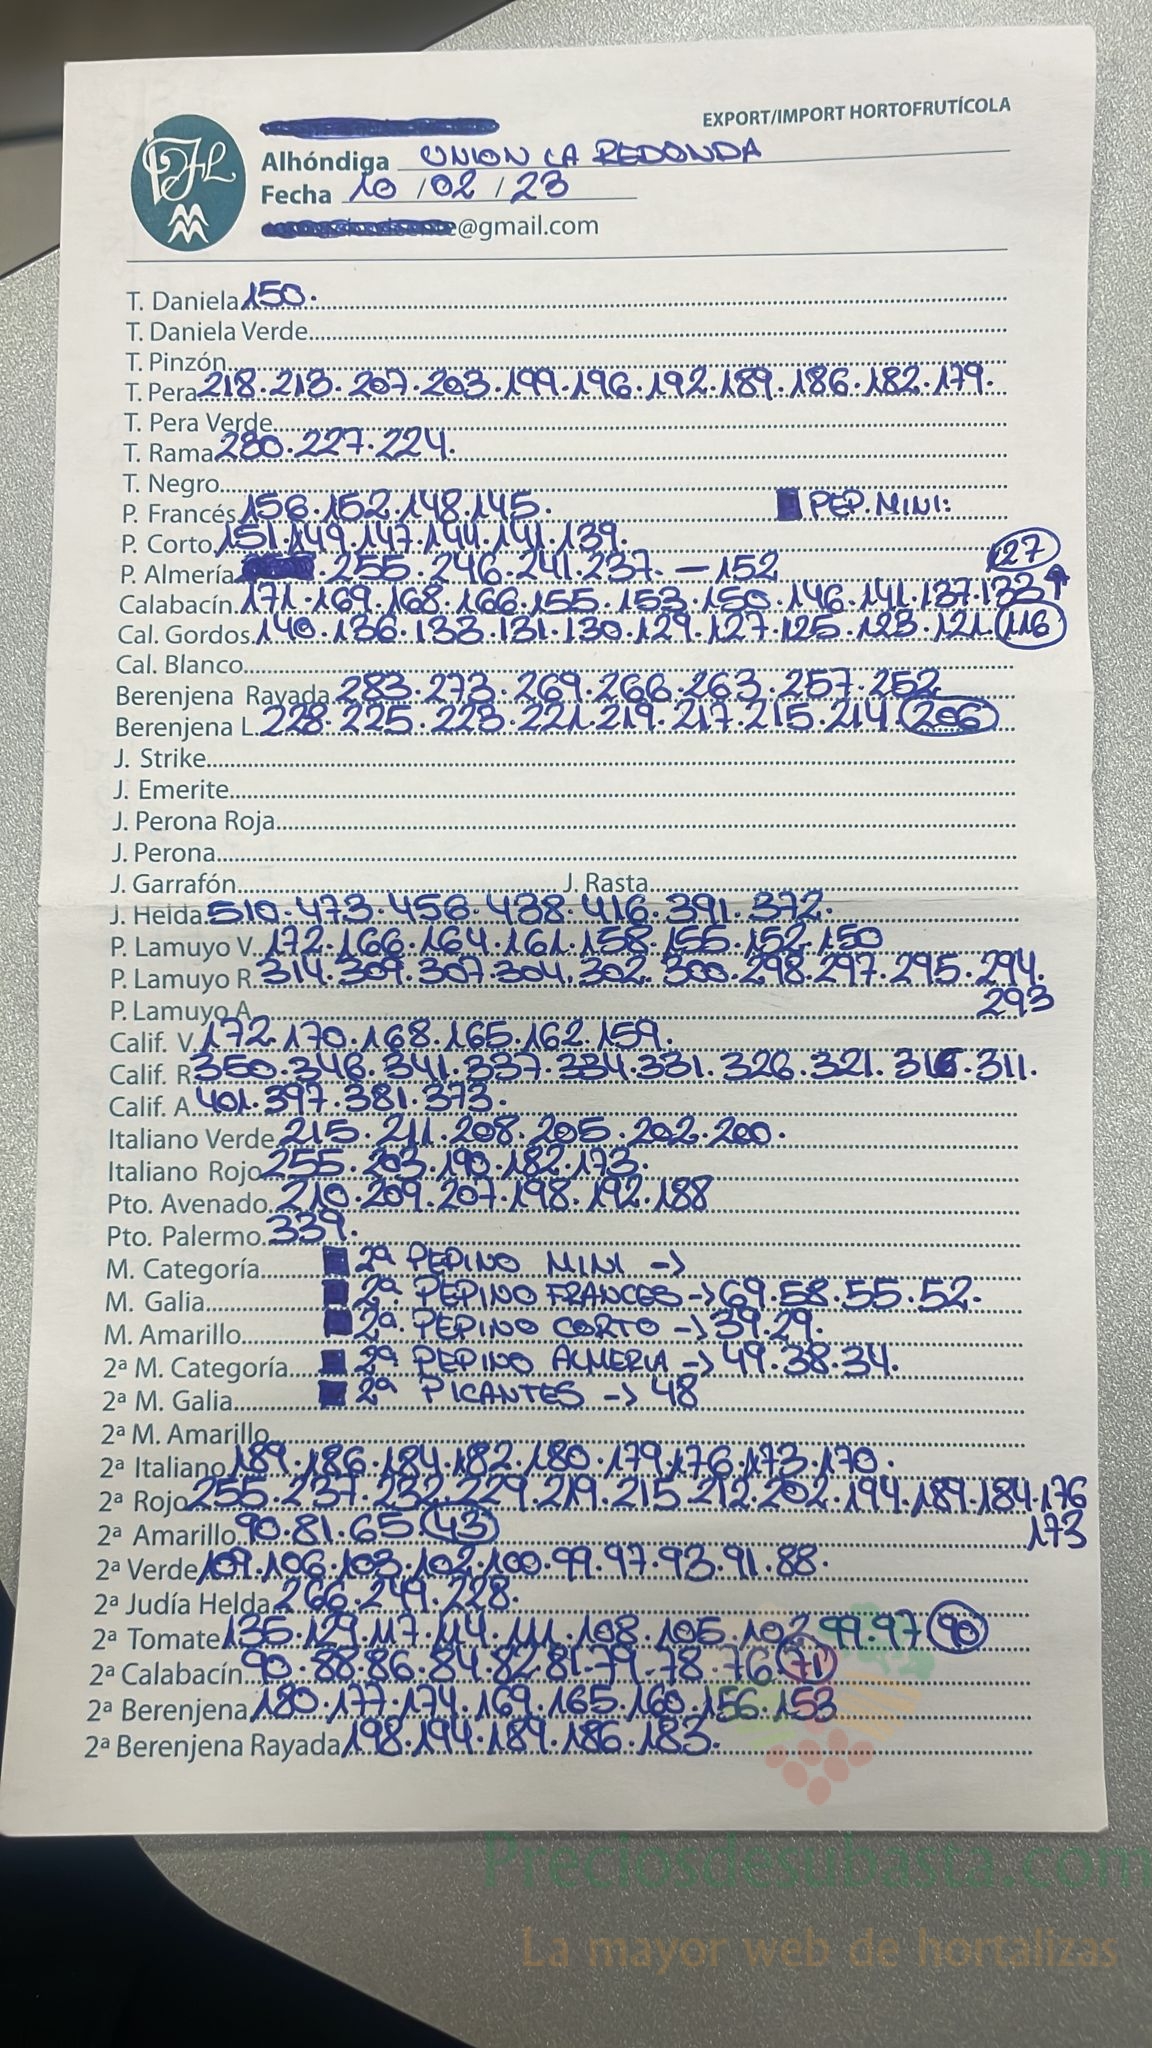 EXPORT/IMPORT HORTOFRUTÍCOLA
Alhóndiga UNION LA REDONDA
Fecha 10 / 02 / 23
@gmail.com
T. Daniela 150.
T. Daniela Verde
T. Pinzón
T. Pera 218.213.207.203.199.196.192.189.186.182.179.
T. Pera Verde
T. Rama 280.227.224.
T. Negro
P. Francés 156.152.148.145. PEP.MINI:
P. Corto 151.149.147.144.141.139.
P. Almería .255.246.241.237. - 152
127
Calabacín 171.169.168.166.155.153.150.146.141.137.133
Cal. Gordos 140.136.133.131.130.129.127.125.123.121.116
Cal. Blanco
Berenjena Rayada 283.273.269.266.263.257.252
Berenjena L. 228.225.223.221.219.217.215.214.206
J. Strike
J. Emerite
J. Perona Roja
J. Perona
J. Garrafón J. Rasta
J. Helda 510.473.456.438.416.391.372.
P. Lamuyo V. 172.166.164.161.158.155.152.150
P. Lamuyo R. 314.309.307.304.302.300.298.297.295.294.
293
P. Lamuyo A.
Calif. V. 172.170.168.165.162.159.
Calif. R. 350.346.341.337.334.331.326.321.316.311.
Calif. A. 401.397.381.373.
Italiano Verde 215.211.208.205.202.200.
Italiano Rojo 255.203.190.182.173.
Pto. Avenado 210.209.207.198.192.188
Pto. Palermo 339.
M. Categoría 2ª PEPINO MINI ->
M. Galia 2ª PEPINO FRANCES -> 69.58.55.52.
M. Amarillo 2ª PEPINO CORTO -> 39.29.
2ª M. Categoría 2ª PEPINO ALMERIA -> 49.38.34.
2ª M. Galia 2ª PICANTES -> 48
2ª M. Amarillo
2ª Italiano 189.186.184.182.180.179.176.173.170.
2ª Rojo 255.237.232.229.219.215.212.202.194.189.184.176
173
2ª Amarillo 90.81.65.43
2ª Verde 109.106.103.102.100.99.97.93.91.88.
2ª Judía Helda 266.249.228.
2ª Tomate 135.129.117.114.111.108.105.102.99.97.90
2ª Calabacín 90.88.86.84.82.81.79.78.76.71
2ª Berenjena 180.177.174.169.165.160.156.153
2ª Berenjena Rayada 198.194.189.186.183.
Preciosdesubasta.com
La mayor web de hortalizas